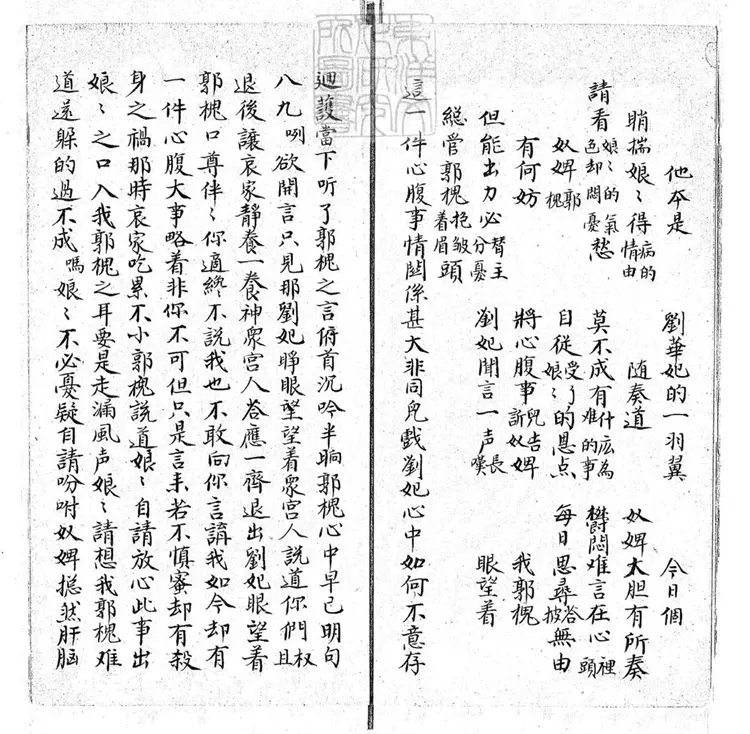 他夲是　劉華妃的一羽翼　今日個
睄揣娘〻得病的情由　随奏道　奴婢大胆有所奏
請看娘〻的氣色却悶憂愁　莫不成有什広為难的事　欝悶难言在心裡頭
奴婢郭槐　自從受了娘〻的恩点　每日思尋答披無由
有何妨　將心腹事兒告訴奴婢　我郭槐
但能出力必替主分憂　劉妃聞言一声長嘆　眼望着
緫管郭槐把皱着眉頭
這一件心腹事情関係甚大非同兒戲劉妃心中如何不意存
廻護當下听了郭槐之言俯首沉吟半晌郭槐心中早已明句
八九咧欲開言只見那劉妃睁眼望望着衆宫人説道你們权且
退後讓哀家靜養一養神衆宫人答應一齊退出劉妃眼望着
郭槐口尊伴〻你適終不説我也不敢向你言講我如今却有
一件心腹大事略着非你不可但只是言来若不慎蜜却有殺
身之禍那時哀家吃累不小郭槐説道娘〻自請放心此事出
娘〻之口入我郭槐之耳要是走漏風声娘〻請想我郭槐难
道还躲的過不成嗎娘〻不必憂疑自請吩咐奴婢摠然肝脑
東洋文
化研究
所圖書